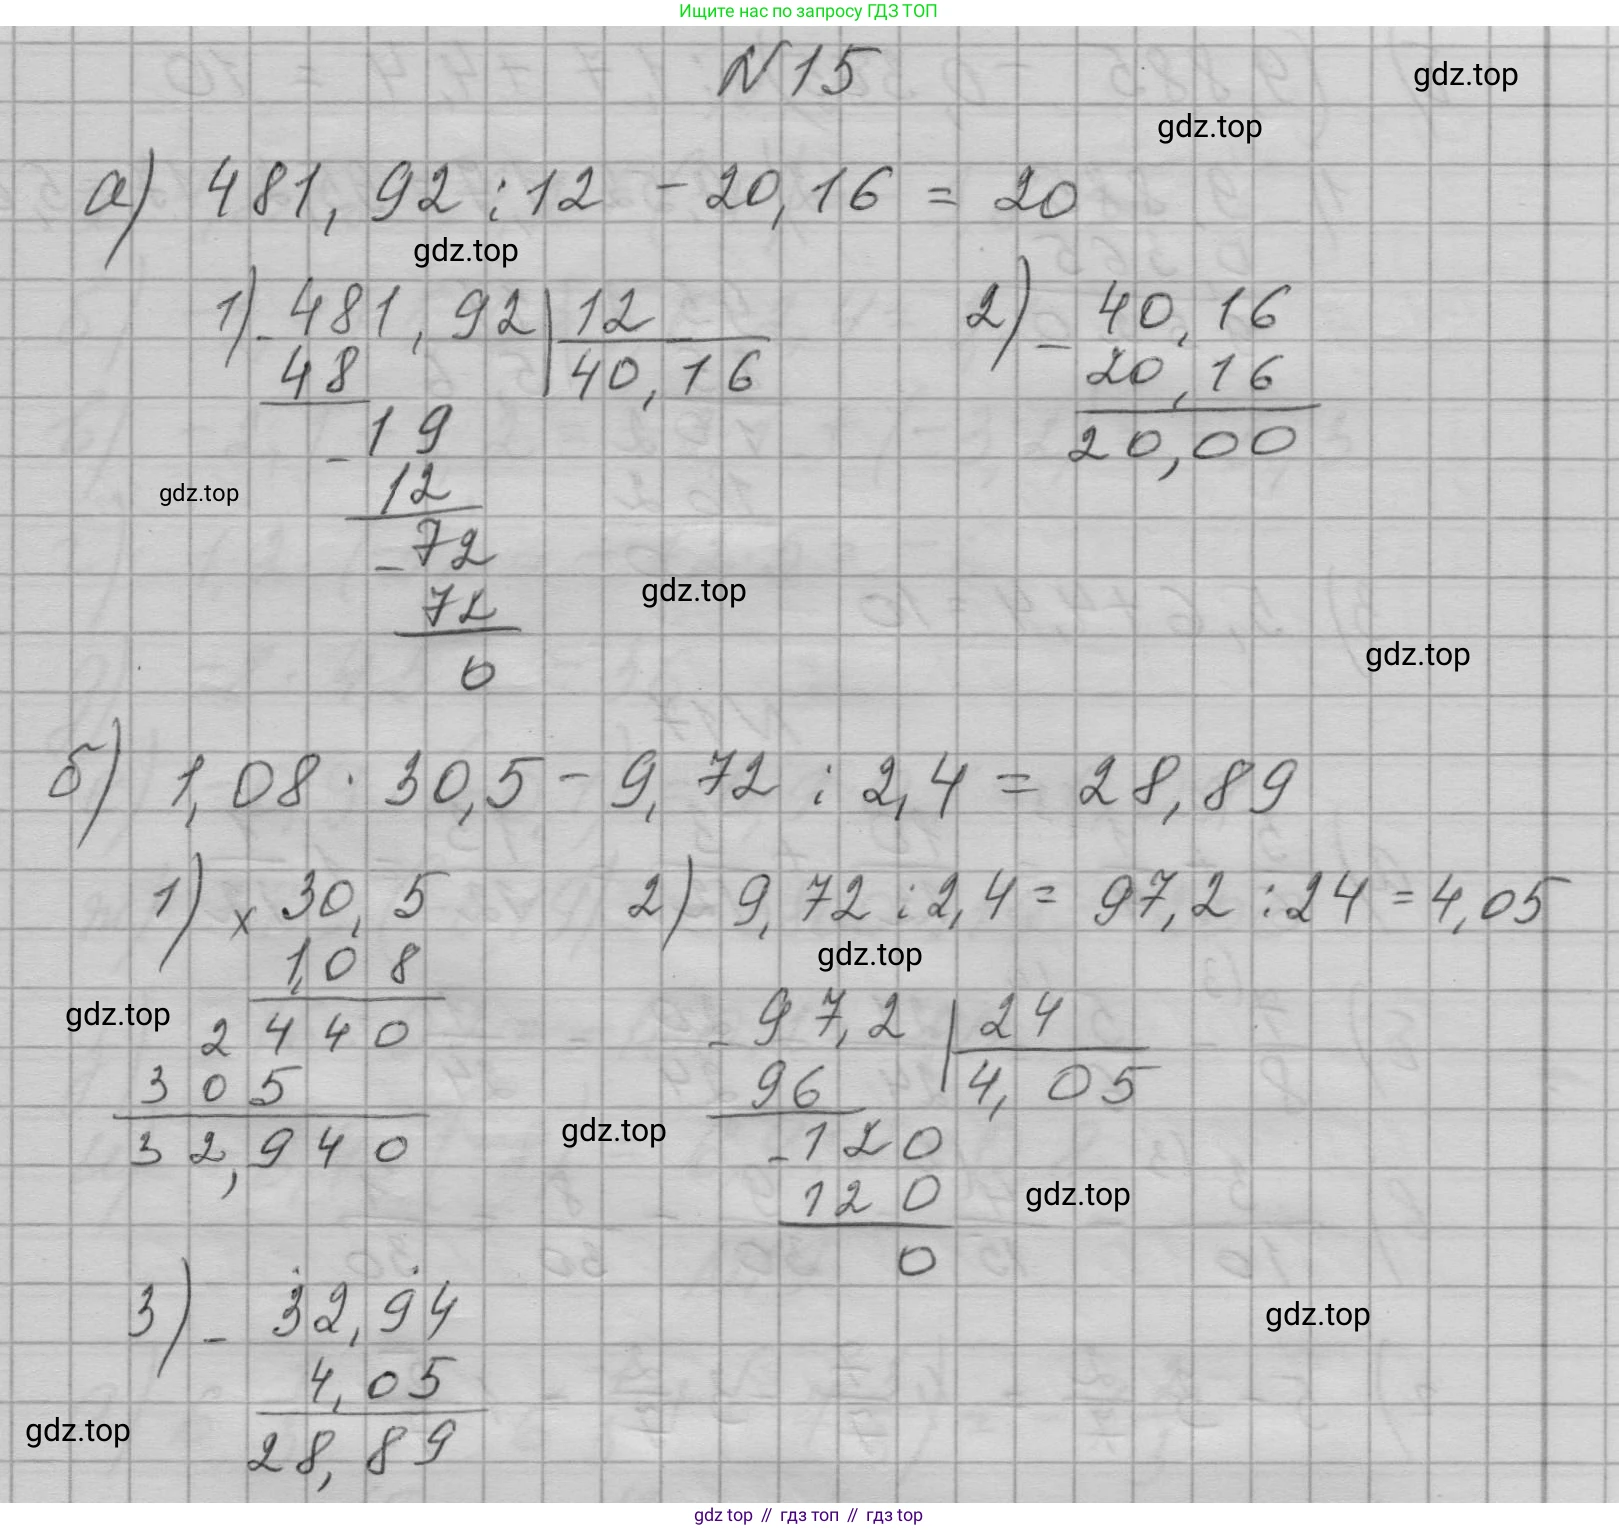 Ищите нас по запросу ГДЗ ТОП
N 15
gdz.top
gdz.top
а) 481,92 : 12 - 20,16 = 20
gdz.top
1) - 481,92 | 12
48 40,16
- 19
12
- 72
72
0
2) - 40,16
20,16
20,00
gdz.top
gdz.top
gdz.top
б) 1,08 · 30,5 - 9,72 : 2,4 = 28,89
1) x 30,5
1,08
2440
305
32,940
gdz.top
2) 9,72 : 2,4 = 97,2 : 24 = 4,05
gdz.top
- 97,2 | 24
96 4,05
- 120
120
0
gdz.top
gdz.top
3) - 32,94
4,05
28,89
gdz.top
gdz.top
gdz top // гдз топ // гдз top